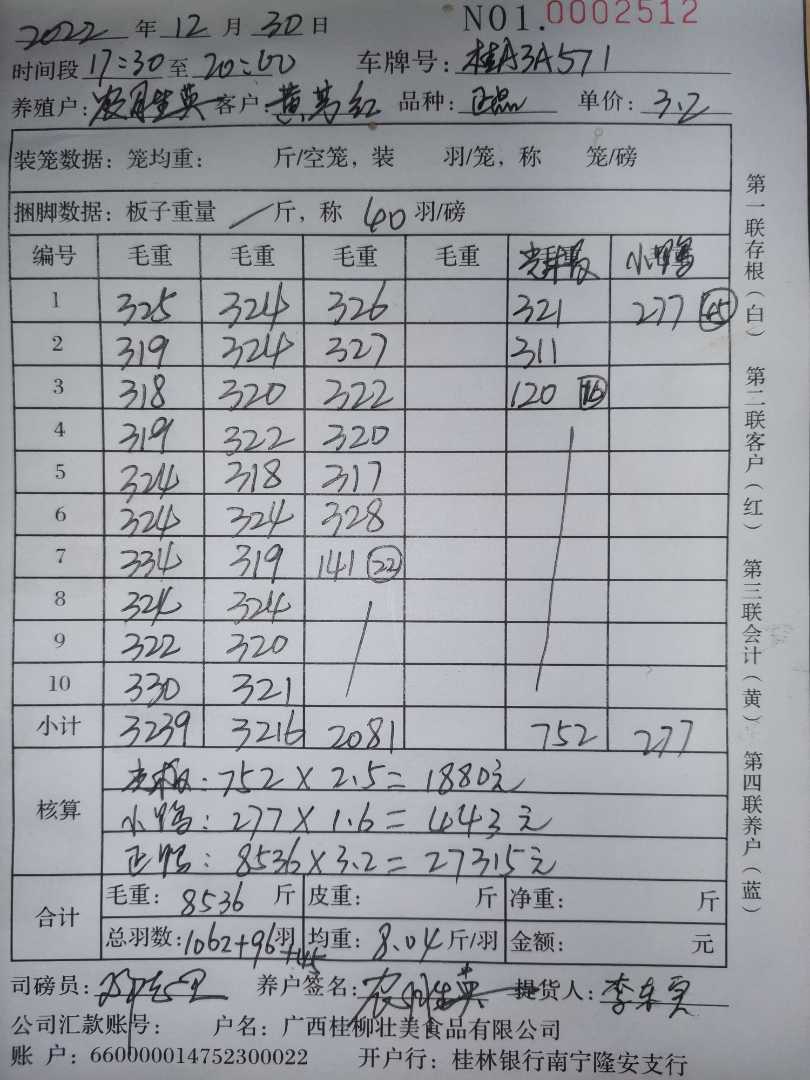 2022 年 12 月 30 日 NO1. 0002512
时间段 17:30 至 20:00 车牌号: 桂A3A571
养殖户: 客户: 黄 红 品种: 正品 单价: 3.2
装笼数据: 笼均重: 斤/空笼, 装 羽/笼, 称 笼/磅
捆脚数据: 板子重量 / 斤, 称 40 羽/磅
编号 毛重 毛重 毛重 毛重 小鸭
1 325 324 326 321 277 45
2 319 324 327 311
3 318 320 322 120 16
4 319 322 320
5 324 318 317
6 324 324 328
7 334 319 141 22
8 324 324
9 322 320
10 330 321
小计 3239 3216 2081 752 277
核算
: 752 × 2.5 = 1880元
小鸭: 277 × 1.6 = 443元
正鸭: 8536 × 3.2 = 27315元
合计
毛重: 8536 斤 皮重: 斤 净重: 斤
总羽数: 1062+96 羽 +45 均重: 8.04 斤/羽 金额: 元
司磅员: 养户签名: 提货人: 李
公司汇款账号: 户名: 广西桂柳壮美食品有限公司
账 户: 660000014752300022 开户行: 桂林银行南宁隆安支行
第一联存根(白) 第二联客户(红) 第三联会计(黄) 第四联养户(蓝)